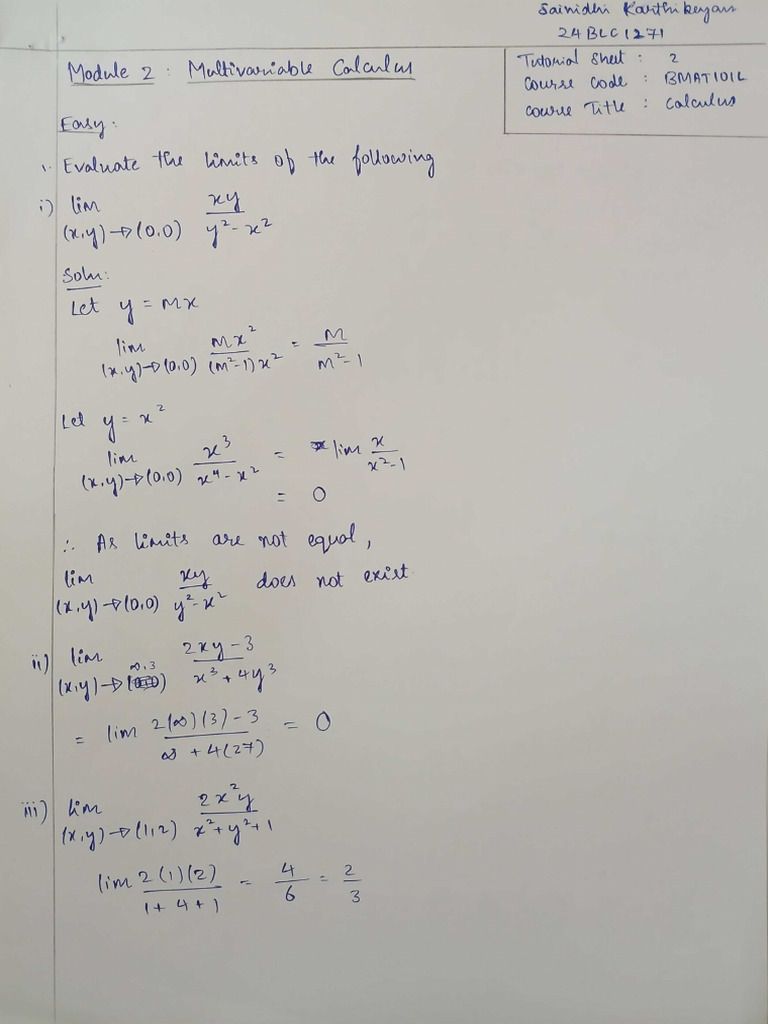 Sainidhi Karthikeyan
24BLC1271
Tutorial Sheet : 2
Course Code : BMAT101L
Course Title : Calculus
Module 2 : Multivariable Calculus
Easy:
1. Evaluate the limits of the following
i) lim (x,y)→(0,0) xy / (y² - x²)
Soln:
Let y = mx
lim (x,y)→(0,0) mx² / (m²-1)x² = m / (m²-1)
Let y = x²
lim (x,y)→(0,0) x³ / (x⁴ - x²) = lim x / (x²-1)
= 0
∴ As limits are not equal,
lim (x,y)→(0,0) xy / (y² - x²) does not exist
ii) lim (x,y)→(∞,3) (2xy - 3) / (x³ + 4y³)
= lim (2(∞)(3) - 3) / (∞ + 4(27)) = 0
iii) lim (x,y)→(1,2) 2x²y / (x² + y² + 1)
lim 2(1)(2) / (1 + 4 + 1) = 4/6 = 2/3